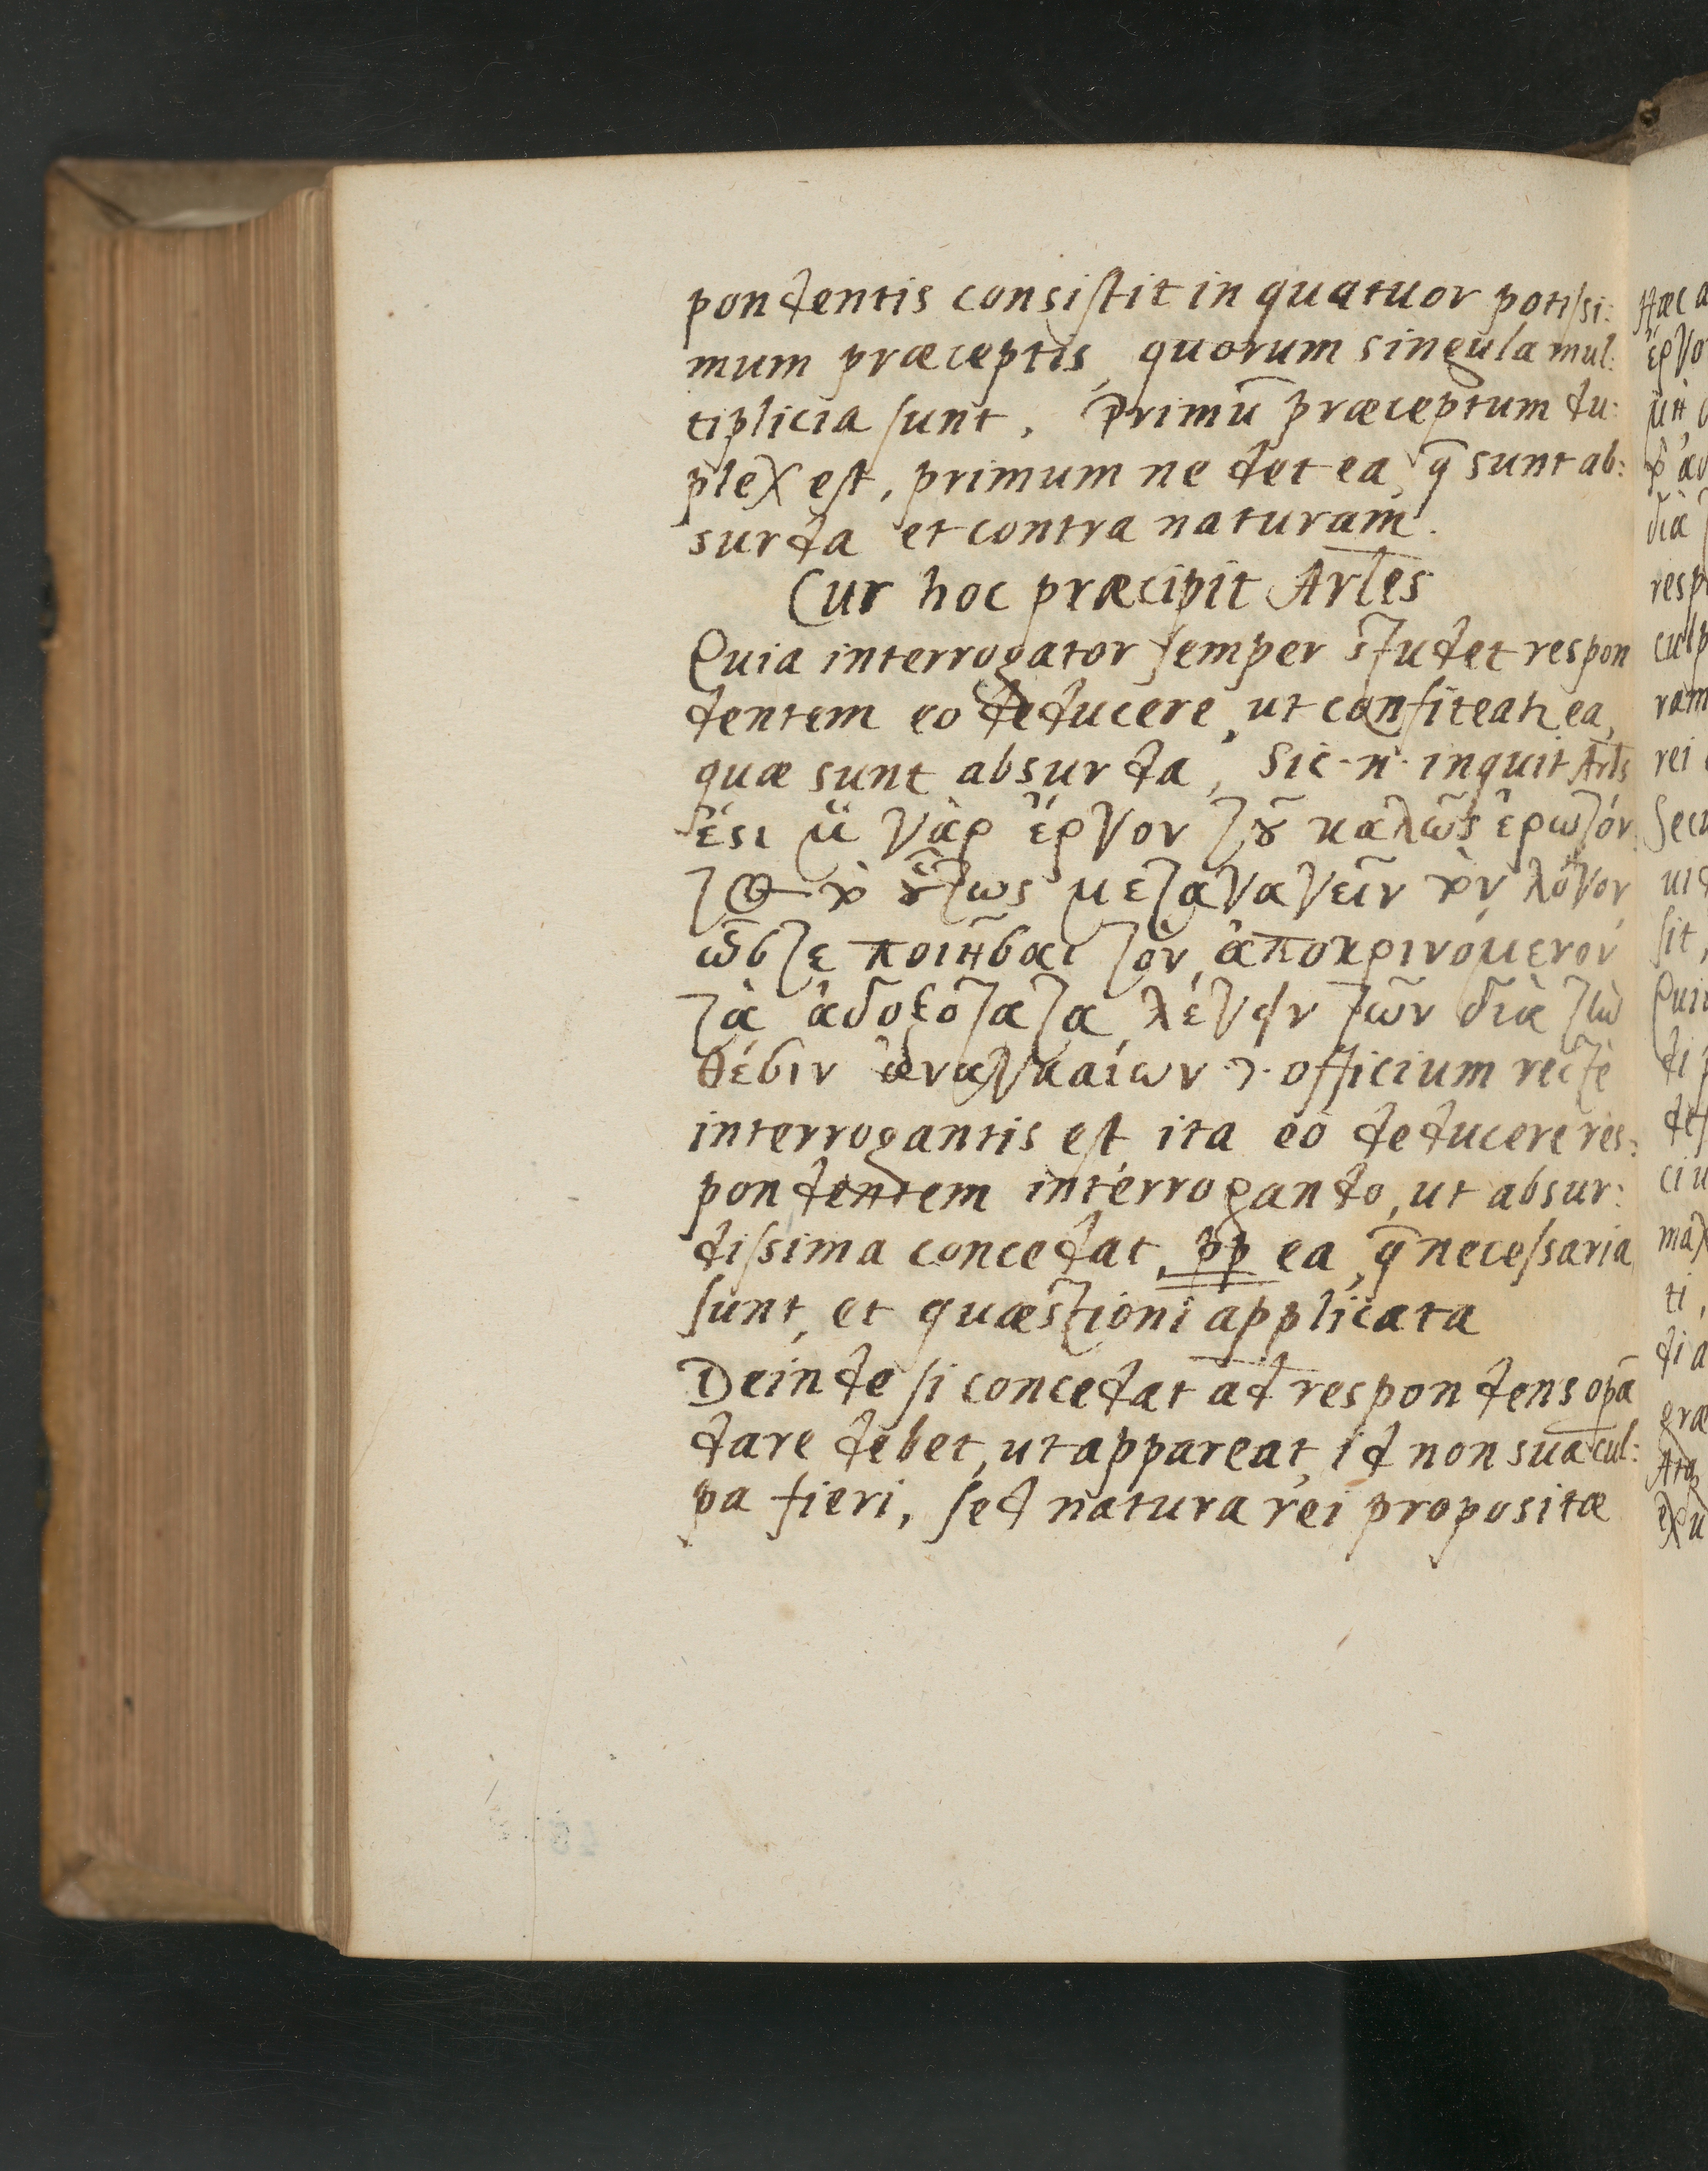 pondentis consistit in quatuor potissi:
mum præceptis, quorum singula mul:
tiplicia sunt. Primū præceptum du:
plex est, primum ne det ea, q̄ sunt ab:
surda et contra naturam.
Cur hoc præcipit Arles
Quia interrogator semper studet respon
dentem eo deducere, ut confiteatr ea,
quæ sunt absurda, Sic ·n· inquit Arls
ἔςι ὃ γὰρ ἔργον τȣ͂ καλῶς ἐρωτόν
τ τὸ ȣ͕̃τως μεταγαγεῖν τὸν λόγον,
ὥστε ποιῆσαι τὸν ἀποκρινόμενον
τὰ ἀδοξότατα λέγειν τῶν διὰ τὴν
θέσιν ἀναγκαίων ·ɔ· officium rectè
interrogantis est ita eò deducere res:
pondentem interrogando, ut absur:
dissima concedat, pp ea, q̄ necessaria
sunt, et quæstioni applicata
Deinde si concedat ad respondens opā
dare debet, ut appareat, id non sua cul:
pa fieri, sed natura rei propositæ
Hæc a
resp
culp
ram
rei
Secu
sit,
Qui
di
def
ciu
max
ti,
di a
græ